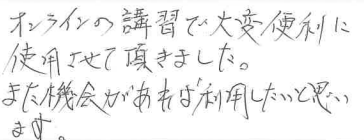 オンラインの講習で大変便利に
使用させて頂きました。
また機会があれば利用したいと思い
ます。